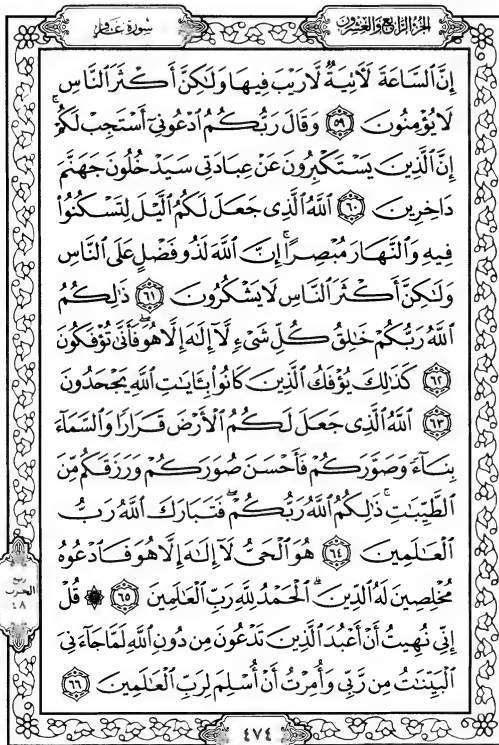 سورة غافر
الجزء الرابع والعشرون
إِنَّ ٱلسَّاعَةَ لَأٓتِيَةٌ لَّا رَيْبَ فِيهَا وَلَٰكِنَّ أَكْثَرَ ٱلنَّاسِ
لَا يُؤْمِنُونَ ٥٩ وَقَالَ رَبُّكُمُ ٱدْعُونِىٓ أَسْتَجِبْ لَكُمْ ۚ
إِنَّ ٱلَّذِينَ يَسْتَكْبِرُونَ عَنْ عِبَادَتِى سَيَدْخُلُونَ جَهَنَّمَ
دَاخِرِينَ ٦٠ ٱللَّهُ ٱلَّذِى جَعَلَ لَكُمُ ٱلَّيْلَ لِتَسْكُنُوا۟
فِيهِ وَٱلنَّهَارَ مُبْصِرًا ۚ إِنَّ ٱللَّهَ لَذُو فَضْلٍ عَلَى ٱلنَّاسِ
وَلَٰكِنَّ أَكْثَرَ ٱلنَّاسِ لَا يَشْكُرُونَ ٦١ ذَٰلِكُمُ
ٱللَّهُ رَبُّكُمْ خَٰلِقُ كُلِّ شَىْءٍ لَّآ إِلَٰهَ إِلَّا هُوَ ۖ فَأَنَّىٰ تُؤْفَكُونَ
٦٢ كَذَٰلِكَ يُؤْفَكُ ٱلَّذِينَ كَانُوا۟ بِـَٔايَٰتِ ٱللَّهِ يَجْحَدُونَ
٦٣ ٱللَّهُ ٱلَّذِى جَعَلَ لَكُمُ ٱلْأَرْضَ قَرَارًا وَٱلسَّمَآءَ
بِنَآءً وَصَوَّرَكُمْ فَأَحْسَنَ صُوَرَكُمْ وَرَزَقَكُم مِّنَ
ٱلطَّيِّبَٰتِ ۚ ذَٰلِكُمُ ٱللَّهُ رَبُّكُمْ ۖ فَتَبَارَكَ ٱللَّهُ رَبُّ
ٱلْعَٰلَمِينَ ٦٤ هُوَ ٱلْحَىُّ لَآ إِلَٰهَ إِلَّا هُوَ فَٱدْعُوهُ
مُخْلِصِينَ لَهُ ٱلدِّينَ ۗ ٱلْحَمْدُ لِلَّهِ رَبِّ ٱلْعَٰلَمِينَ ٦٥ ۞ قُلْ
إِنِّى نُهِيتُ أَنْ أَعْبُدَ ٱلَّذِينَ تَدْعُونَ مِن دُونِ ٱللَّهِ لَمَّا جَآءَنِىَ
ٱلْبَيِّنَٰتُ مِن رَّبِّى وَأُمِرْتُ أَنْ أُسْلِمَ لِرَبِّ ٱلْعَٰلَمِينَ ٦٦
ربع
الحزب
٤٨
٤٧٤